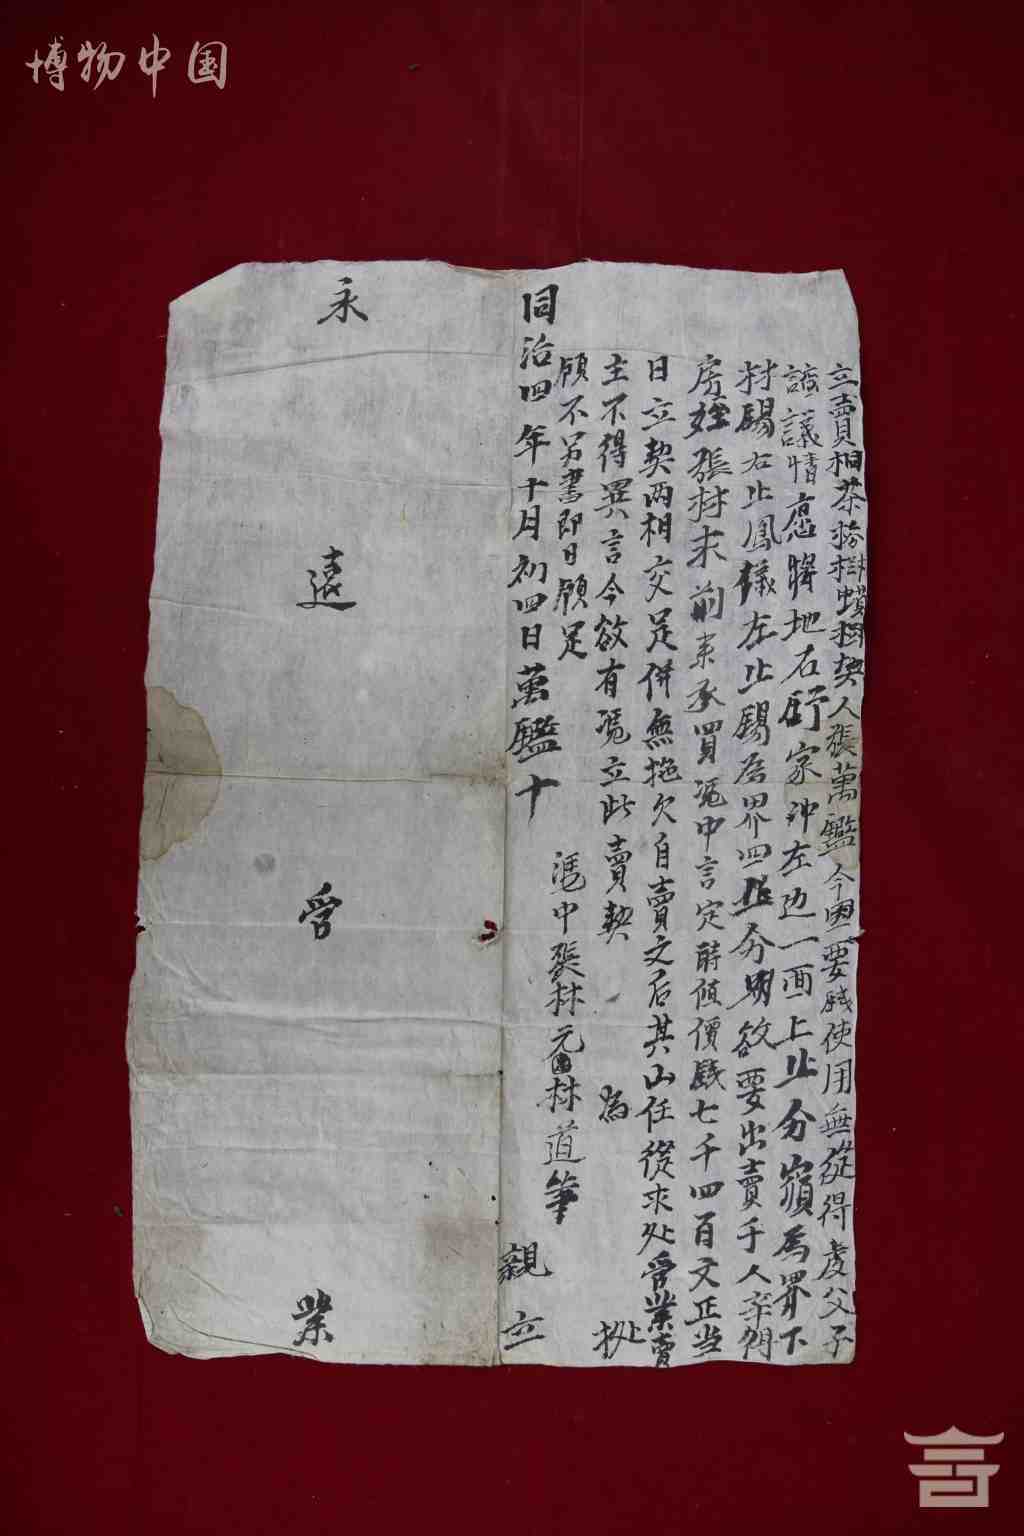 博物中国
立賣桐茶杉樹蠟樹契人張萬鑑今因要錢使用無從得處父子
謫議情愿將地名舒家冲左边一面上止分嶺為界下
村賜右止鳳儀左止錫為界四抵分明欲要出賣于人年得
房姪張村求前來承買凴中言定時值價錢七千四百文正当
日立契两相交足併無拖欠自賣之后其山任從求处管業賣
主不得異言今欲有凴立此賣契 為 処
領不另書即日領足
凴中張林元 林道筆
同治四年十月初四日萬鑑十 親立
永遠管業